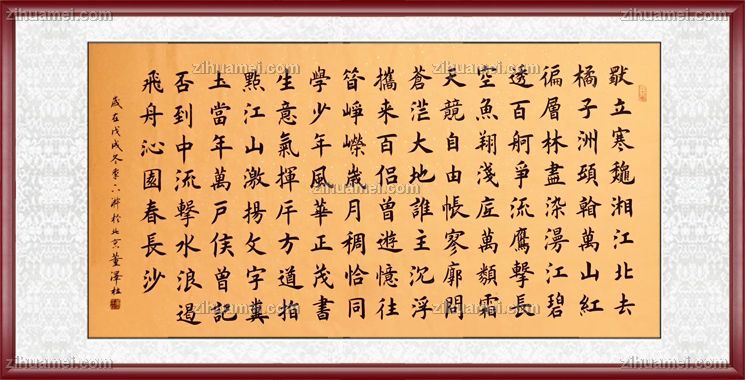 獨立寒龝湘江北去
橘子洲頭看萬山紅
徧層林盡染漫江碧
透百舸爭流鷹擊長
空魚翔淺底萬類霜
天競自由悵寥廓問
蒼茫大地誰主沉浮
攜來百侶曾遊憶往
昔崢嶸歲月稠恰同
學少年風華正茂書
生意氣揮斥方遒指
點江山激揚文字糞
土當年萬戶侯曾記
否到中流擊水浪遏
飛舟沁園春長沙
歲在戊戌冬季 於北京董澤柱
zihuamei.com
zihuamei.com
zihuamei.com
zihuamei.com
zihuamei.com
zihuamei.com
zihuamei.com
zihuamei.com
zihuamei.com
zihuamei.com
zihuamei.com